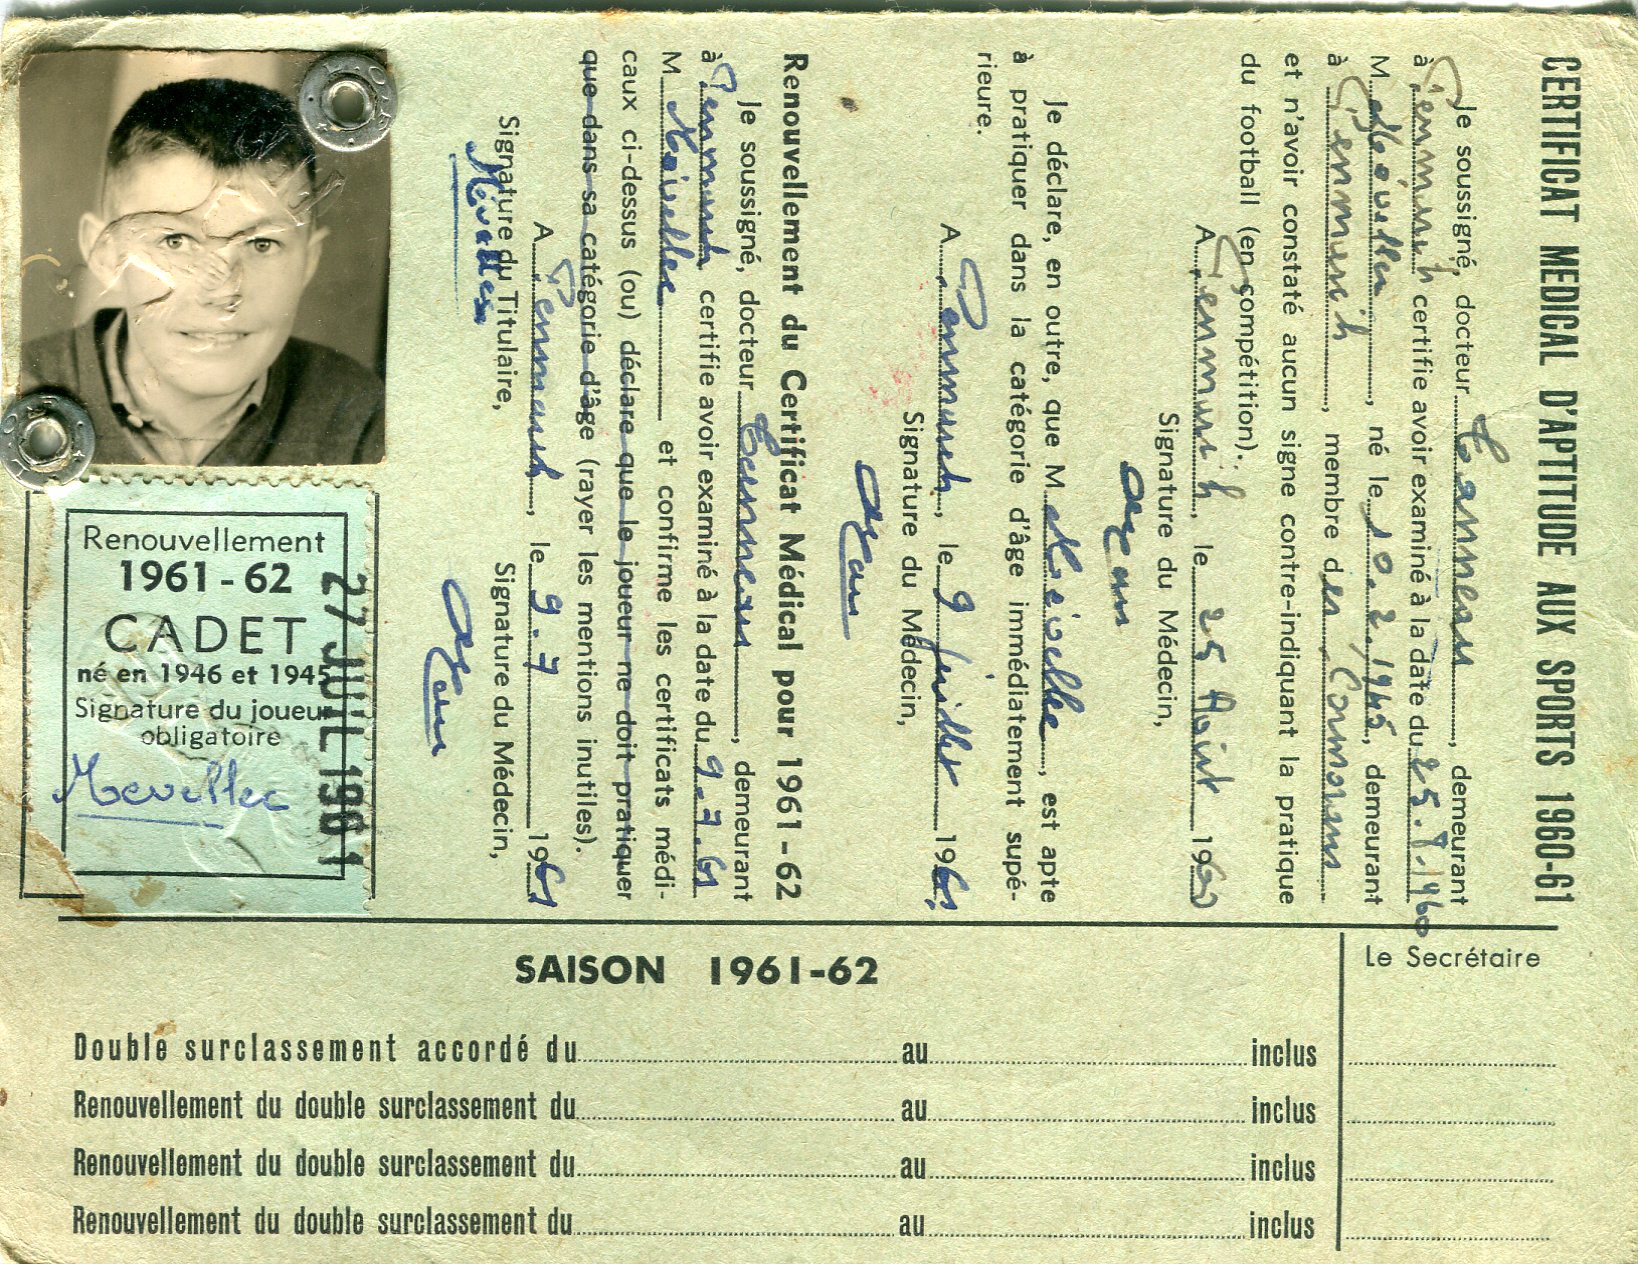 CERTIFICAT MEDICAL D'APTITUDE AUX SPORTS 1960-61
Je soussigné, docteur Canneau, demeurant
à Penmarch certifie avoir examiné à la date du 25.8.1960
M. Mévellec, né le 10.2.1945, demeurant
à Penmarch, membre des Cormorans
et n'avoir constaté aucun signe contre-indiquant la pratique
du football (en compétition).
A Penmarch, le 25 Août 1960
Signature du Médecin,
Je déclare, en outre, que M. Mévellec, est apte
à pratiquer dans la catégorie d'âge immédiatement supé-
rieure.
A Penmarch, le 9 juillet 1961
Signature du Médecin,
Renouvellement du Certificat Médical pour 1961-62
Je soussigné, docteur Canneau, demeurant
à Penmarch certifie avoir examiné à la date du 9.7.61
M. Mévellec et confirme les certificats médi-
caux ci-dessus (ou) déclare que le joueur ne doit pratiquer
que dans sa catégorie d'âge (rayer les mentions inutiles).
A Penmarch, le 9.7 1961
Signature du Titulaire, Signature du Médecin,
Mévellec
Renouvellement
1961-62
CADET
né en 1946 et 1945
Signature du joueur
obligatoire
Mevellec
27 JUIL 1961
SAISON 1961-62
Le Secrétaire
Double surclassement accordé du au inclus
Renouvellement du double surclassement du au inclus
Renouvellement du double surclassement du au inclus
Renouvellement du double surclassement du au inclus